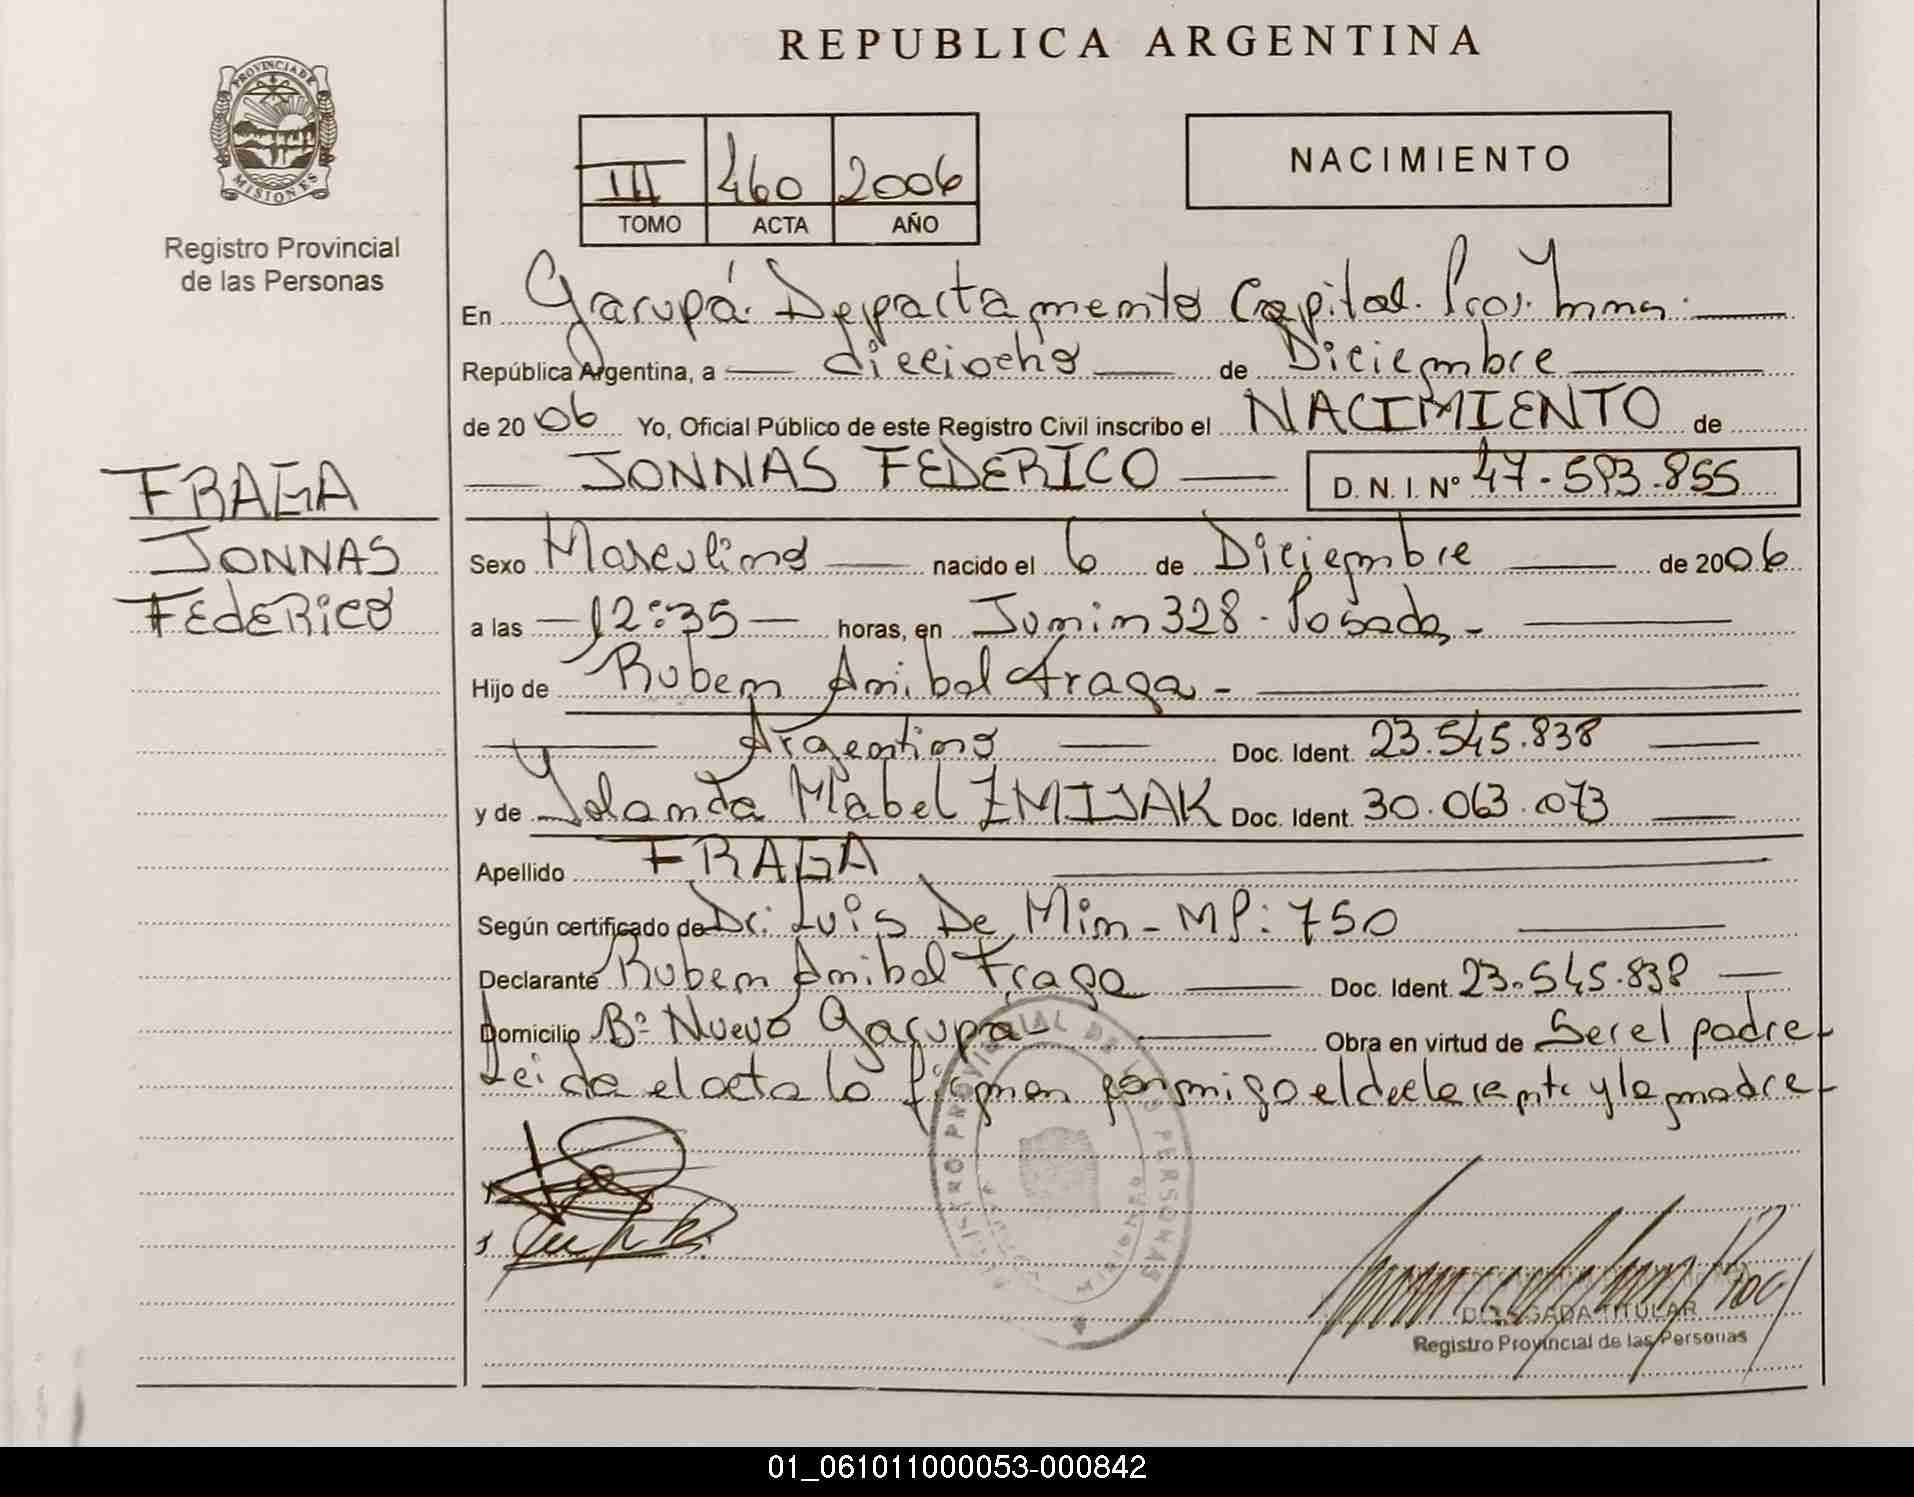 REPUBLICA ARGENTINA
PROVINCIA DE
MISIONES
Registro Provincial
de las Personas
III 460 2006
TOMO ACTA AÑO
NACIMIENTO
En Garupá. Departamento Capital. Prov. Mnes.
República Argentina, a dieciocho de Diciembre
de 2006 Yo, Oficial Público de este Registro Civil inscribo el NACIMIENTO de
JONNAS FEDERICO D. N. I. Nº 47.593.855
FRAGA
JONNAS
FEdERico
Sexo Masculino nacido el 6 de Diciembre de 2006
a las 12:35 horas, en Junin 328 - Posadas -
Hijo de Ruben Anibal Fraga -
Argentino Doc. Ident. 23.545.838
y de Yolanda Mabel ZMIJAK Doc. Ident. 30.063.073
Apellido FRAGA
Según certificado de Dr. Luis De Min - MP: 750
Declarante Ruben Anibal Fraga Doc. Ident. 23.545.838
Domicilio Bº Nuevo Garupa - Obra en virtud de Ser el padre -
Leida el acta la firman conmigo el declarante y la madre -
REGISTRO PROVINCIAL DE LAS PERSONAS
MISIONES
DELEGADA TITULAR
Registro Provincial de las Personas
01_061011000053-000842